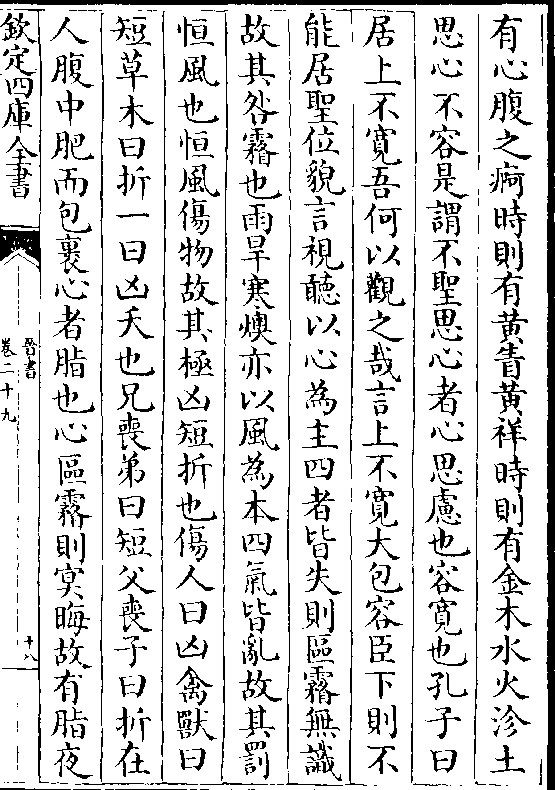 有心腹之痾時則有黄眚黄祥時則有金木水火沴土
思心不容是謂不聖思心者心思慮也容寛也孔子曰
居上不寛吾何以觀之哉言上不寛大包容臣下則不
能居聖位貌言視聽以心為主四者皆失則區霧無識
故其咎霧也雨旱寒燠亦以風為本四氣皆亂故其罰
恒風也恒風傷物故其極凶短折也傷人曰凶禽獸曰
短草木曰折一曰凶夭也兄喪弟曰短父喪子曰折在
人腹中肥而包裹心者脂也心區霧則冥晦故有脂夜
欽定四庫全書
晉書
卷二十九
十八